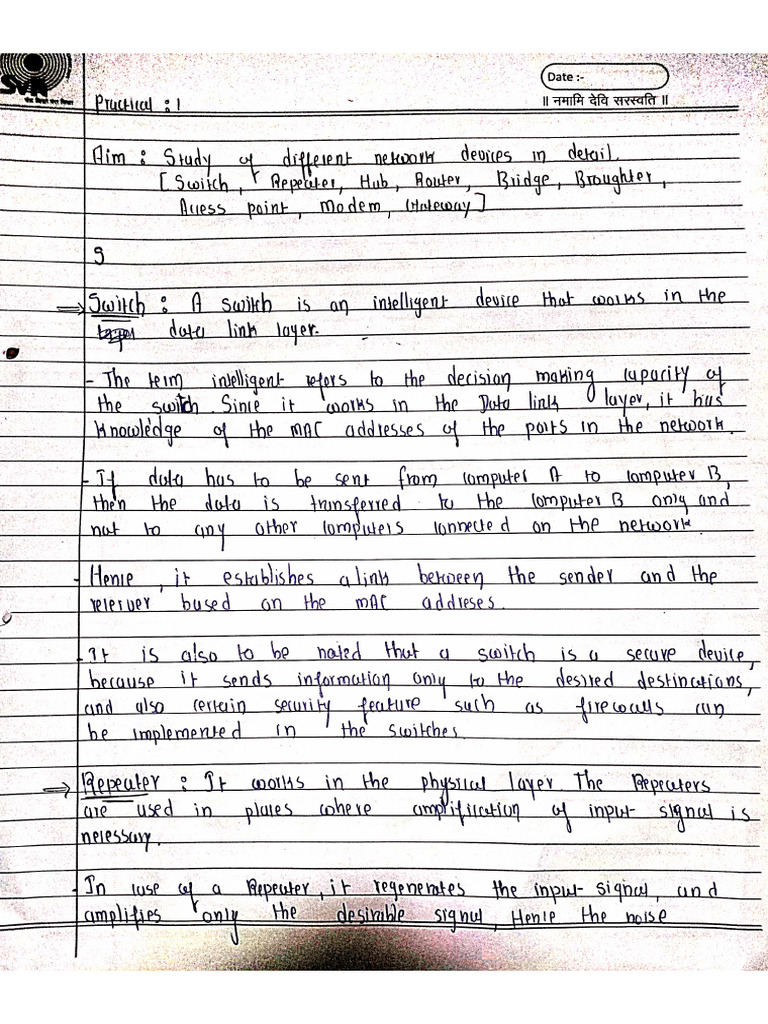 SVN
Date :-
॥ नमामि देवि सरस्वति ॥
Practical : 1
Aim : Study of different network devices in detail.
[Switch, Repeater, Hub, Router, Bridge, Broughter,
Access point, Modem, Gateway]
9
⇒ Switch : A switch is an intelligent device that works in the
data link layer.
- The term intelligent refers to the decision making capacity of
the switch. Since it works in the Data link layer, it has
knowledge of the MAC addresses of the ports in the network.
- If data has to be sent from computer A to computer B,
then the data is transferred to the computer B only and
not to any other computers connected on the network.
- Hence, it establishes a link between the sender and the
reciever based on the MAC addreses.
- It is also to be noted that a switch is a secure device,
because it sends information only to the desired destinations,
and also certain security feature such as firewalls can
be implemented in the switches.
⇒ Repeater : It works in the physical layer. The Repeaters
are used in places where amplification of input-signal is
necessary.
- In case of a Repeater, it regenerates the input-signal, and
amplifies only the desirable signal, Hence the noise